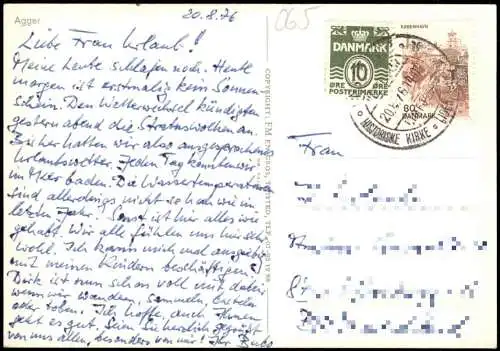 Agger
20.8.76
065
Liebe Frau Urlaub!
Meine Leute schlafen noch. Heute
morgen ist erstmalig kein Sonnen-
schein. Den Wetterwechsel kündigten
gestern abend die Stratuswolken an.
Bisher hatten wir also ausgesprochenes
Urlaubswetter. Jeden Tag konnten wir
im Meer baden. Die Wassertemperaturen
sind allerdings nicht so hoch wie im
letzten Jahr. Sonst ist hier alles wie
gehabt. Wir alle fühlen uns hier sehr
wohl. Ich kann mich mal ausgiebig
mit meinen Kindern beschäftigen.
Dirk ist nun schon voll mit dabei
wenn wir wandern, sammeln, basteln
oder toben. Ich hoffe, auch Ihnen
geht es gut. Seien Sie herzlich gegrüßt
von uns allen, besonders von mir! Ihr
COPYRIGHT:
KØBENHAVN
DANMARK
10
ØRE ØRE
POSTFRIMÆRKE
80
DANMARK
HISTORISKE KIRKE
Frau